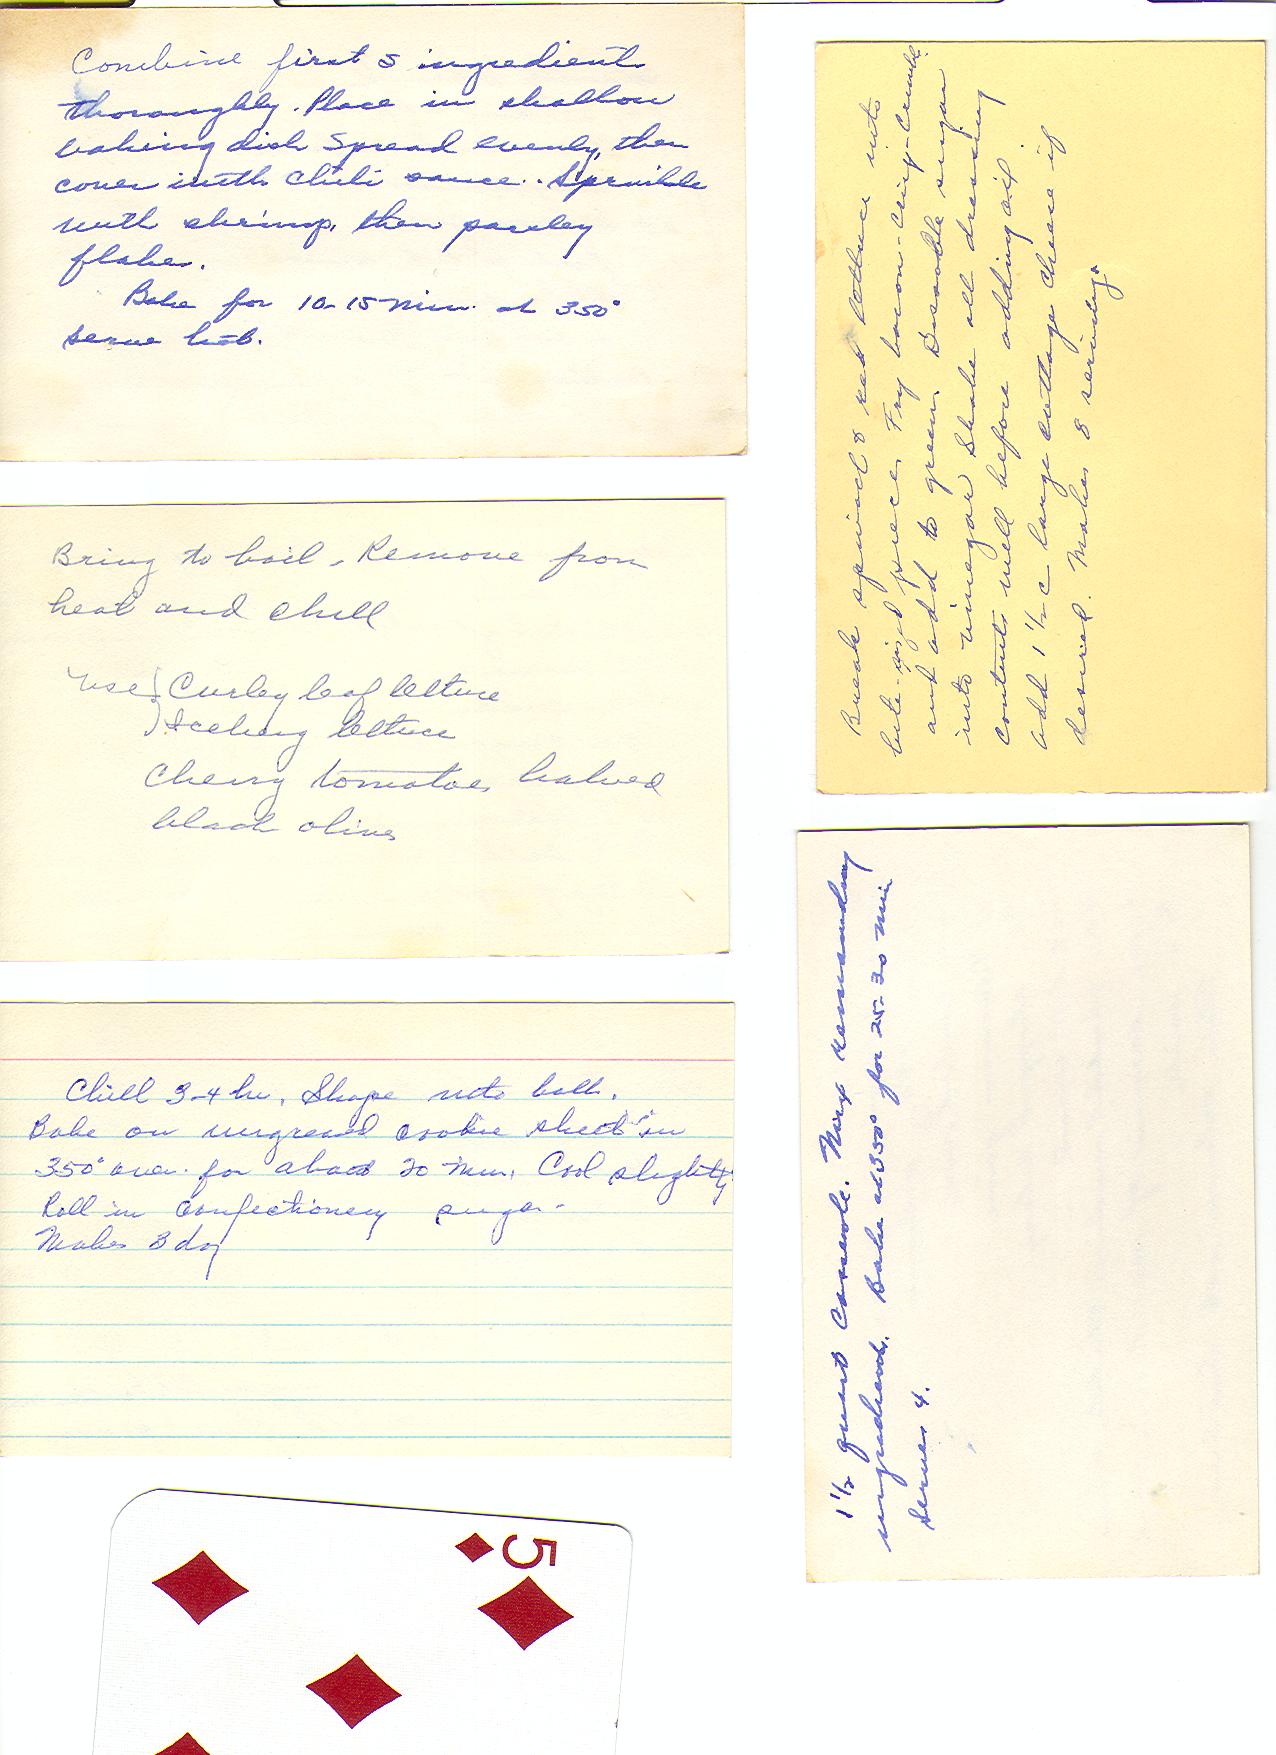 Combine first 5 ingredient
thoroughly. Place in shallow
baking dish Spread evenly, then
cover with chili sauce. Sprinkle
with shrimp, then parsley
flakes.
Bake for 10-15 min. at 350°
serve hot.
Bring to boil. Remove from
heat and chill
Use { Curley leaf lettuce
Iceberg lettuce
Cherry tomatoes halved
black olives
Chill 3-4 hr. Shape into balls.
Bake on ungreased cookie sheet in
350° oven for about 20 min. Cool slightly
Roll in confectionery sugar.
Makes 3 doz
5
Break spinach & red lettuce into
bite-sized pieces. Fry bacon-crisp-crumble
and add to green. Dissolve sugar
into vinegar Shake all dressing
contents well before adding oil.
Add 1 1/2 c large cottage cheese if
desired. Makes 8 servings
1 1/2 quart Casserole. Mix remaining
ingredients. Bake at 350° for 25-30 min
Serves 4.